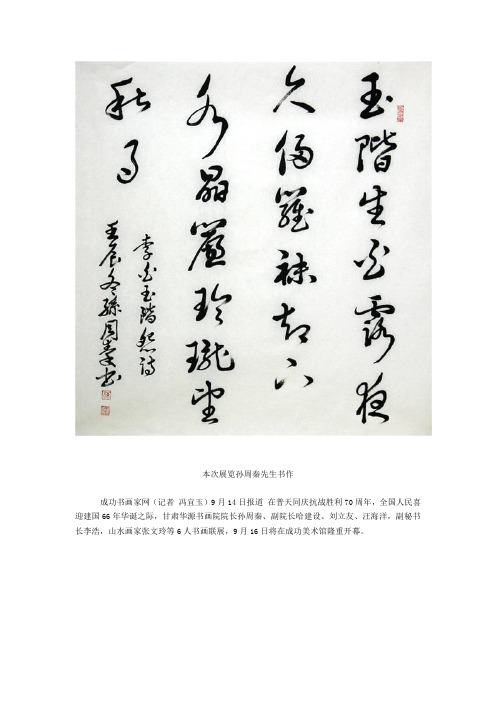 玉階生白露夜
久侵羅袜却下
水晶簾玲瓏望
秋月
李白玉階怨诗
壬辰冬孫周秦书
本次展览孙周秦先生书作
成功书画家网（记者 冯宜玉）9月14日报道 在普天同庆抗战胜利70周年，全国人民喜
迎建国66年华诞之际，甘肃华源书画院院长孙周秦、副院长哈建设、刘立友、汪海洋，副秘书
长李浩，山水画家张文玲等6人书画联展，9月16日将在成功美术馆隆重开幕。